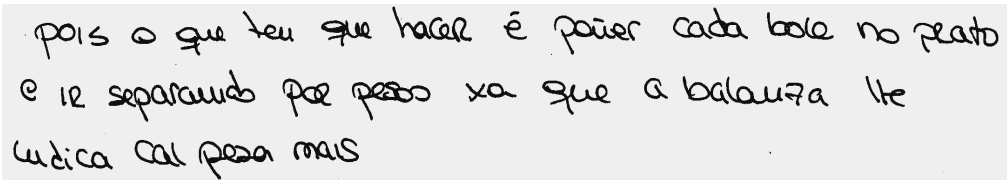 pois o que ten que hacer é poñer cada bola no prato
e ir separando por pesos xa que a balanza lle
indica cal pesa mais